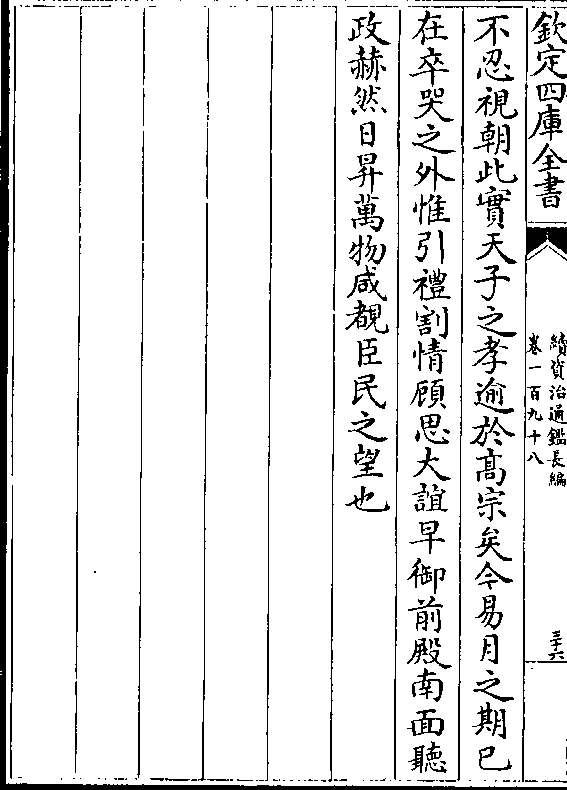 欽定四庫全書
續資治通鑑長編
卷一百九十八
三十六
不忍視朝此實天子之孝逾於髙宗矣今易月之期已
在卒哭之外惟引禮割情顧思大誼早御前殿南面聽
政赫然日昇萬物咸覩臣民之望也